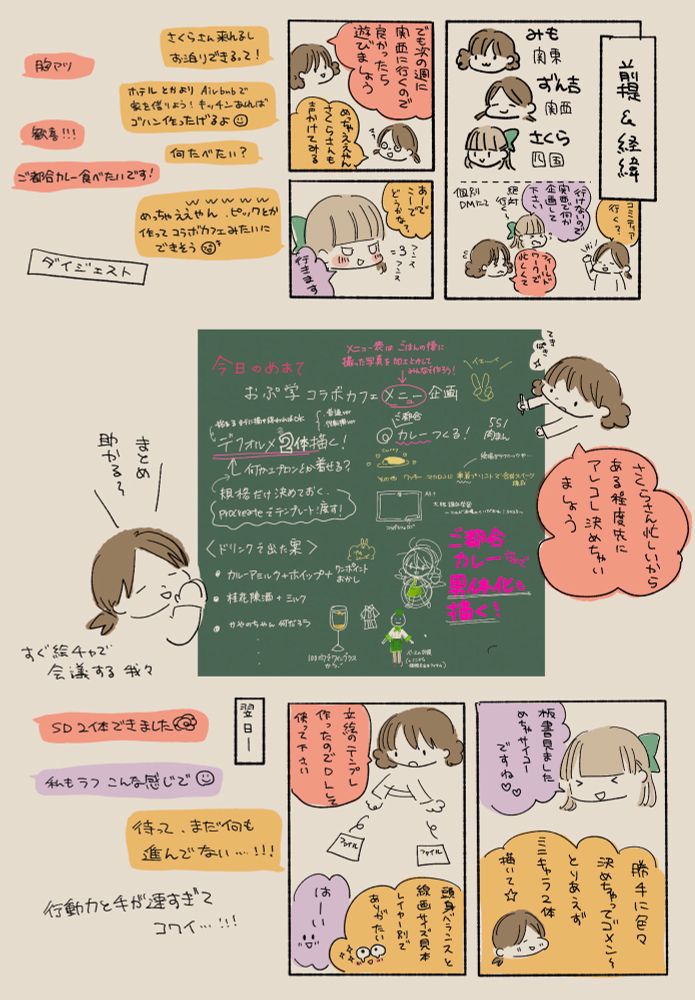 前提&経緯
みも
関東
ずん吉
関西
さくら
四国
コミティア
行く?
行けないので
関西で何か
企画して
下さい
絶対
行く
個別
DMにて
フィールド
ワークで
忙しくて
でも次の週に
関西に行くので
良かったら
遊びましょう
めちゃええやん
さくらさんも
声かけてみる
あーで
こーで
どうかな?
フンス
フンス
行きます
さくらさん来れるし
お泊りできるって!
胸アツ
ホテルとかより Airbnbで
家を借りよう! キッチンあれば
ゴハン作ったげるよ
歓喜!!!
何たべたい?
ご都合カレー食べたいです!
wwwww
めっちゃええやん、ピックとか
作ってコラボカフェみたいに
できそう
ダイジェスト
てき
ぱき
さくらさん忙しいから
ある程度先に
アレコレ決めちゃい
ましょう
メニュー表は ごはんの後に
撮った写真を加工とかして
みんなで作ろう!
今日のめあて
イェーイ
おぷ学 コラボカフェ メニュー 企画
デフォルメ2体描く!
ご都合
カレーつくる!
551
肉まん
↑何かエプロンとか着せる?
規格だけ決めておく、
procreateでテンプレート渡す!
<ドリンクで出た案>
・カレーアミルク+ホイップ+
ワンポイント
おかし
・桂花陳酒+ミルク
・かやのちゃん 何だろう
100均のワイングラス
から!
ご都合
カレーちゃんで
男体化も
描く!
まとめ
助かる~
すぐ絵チャで
会議する我々
板書見ました
めちゃサイコー
ですね♡♡
勝手に色々
決めちゃってゴメン~
とりあえず
ミニキャラ2体
描いて☆
立絵のテンプレ
作ったのでDLして
使って下さい
ファイル
ファイル
頭身バランスと
線画サイズ見本
レイヤー別で
ありがたい
はーい
翌日ー
SD2体できました
私もラフ こんな感じで
待って、まだ何も
進んでない…!!!
行動力と手が速すぎて
コワイ…!!!